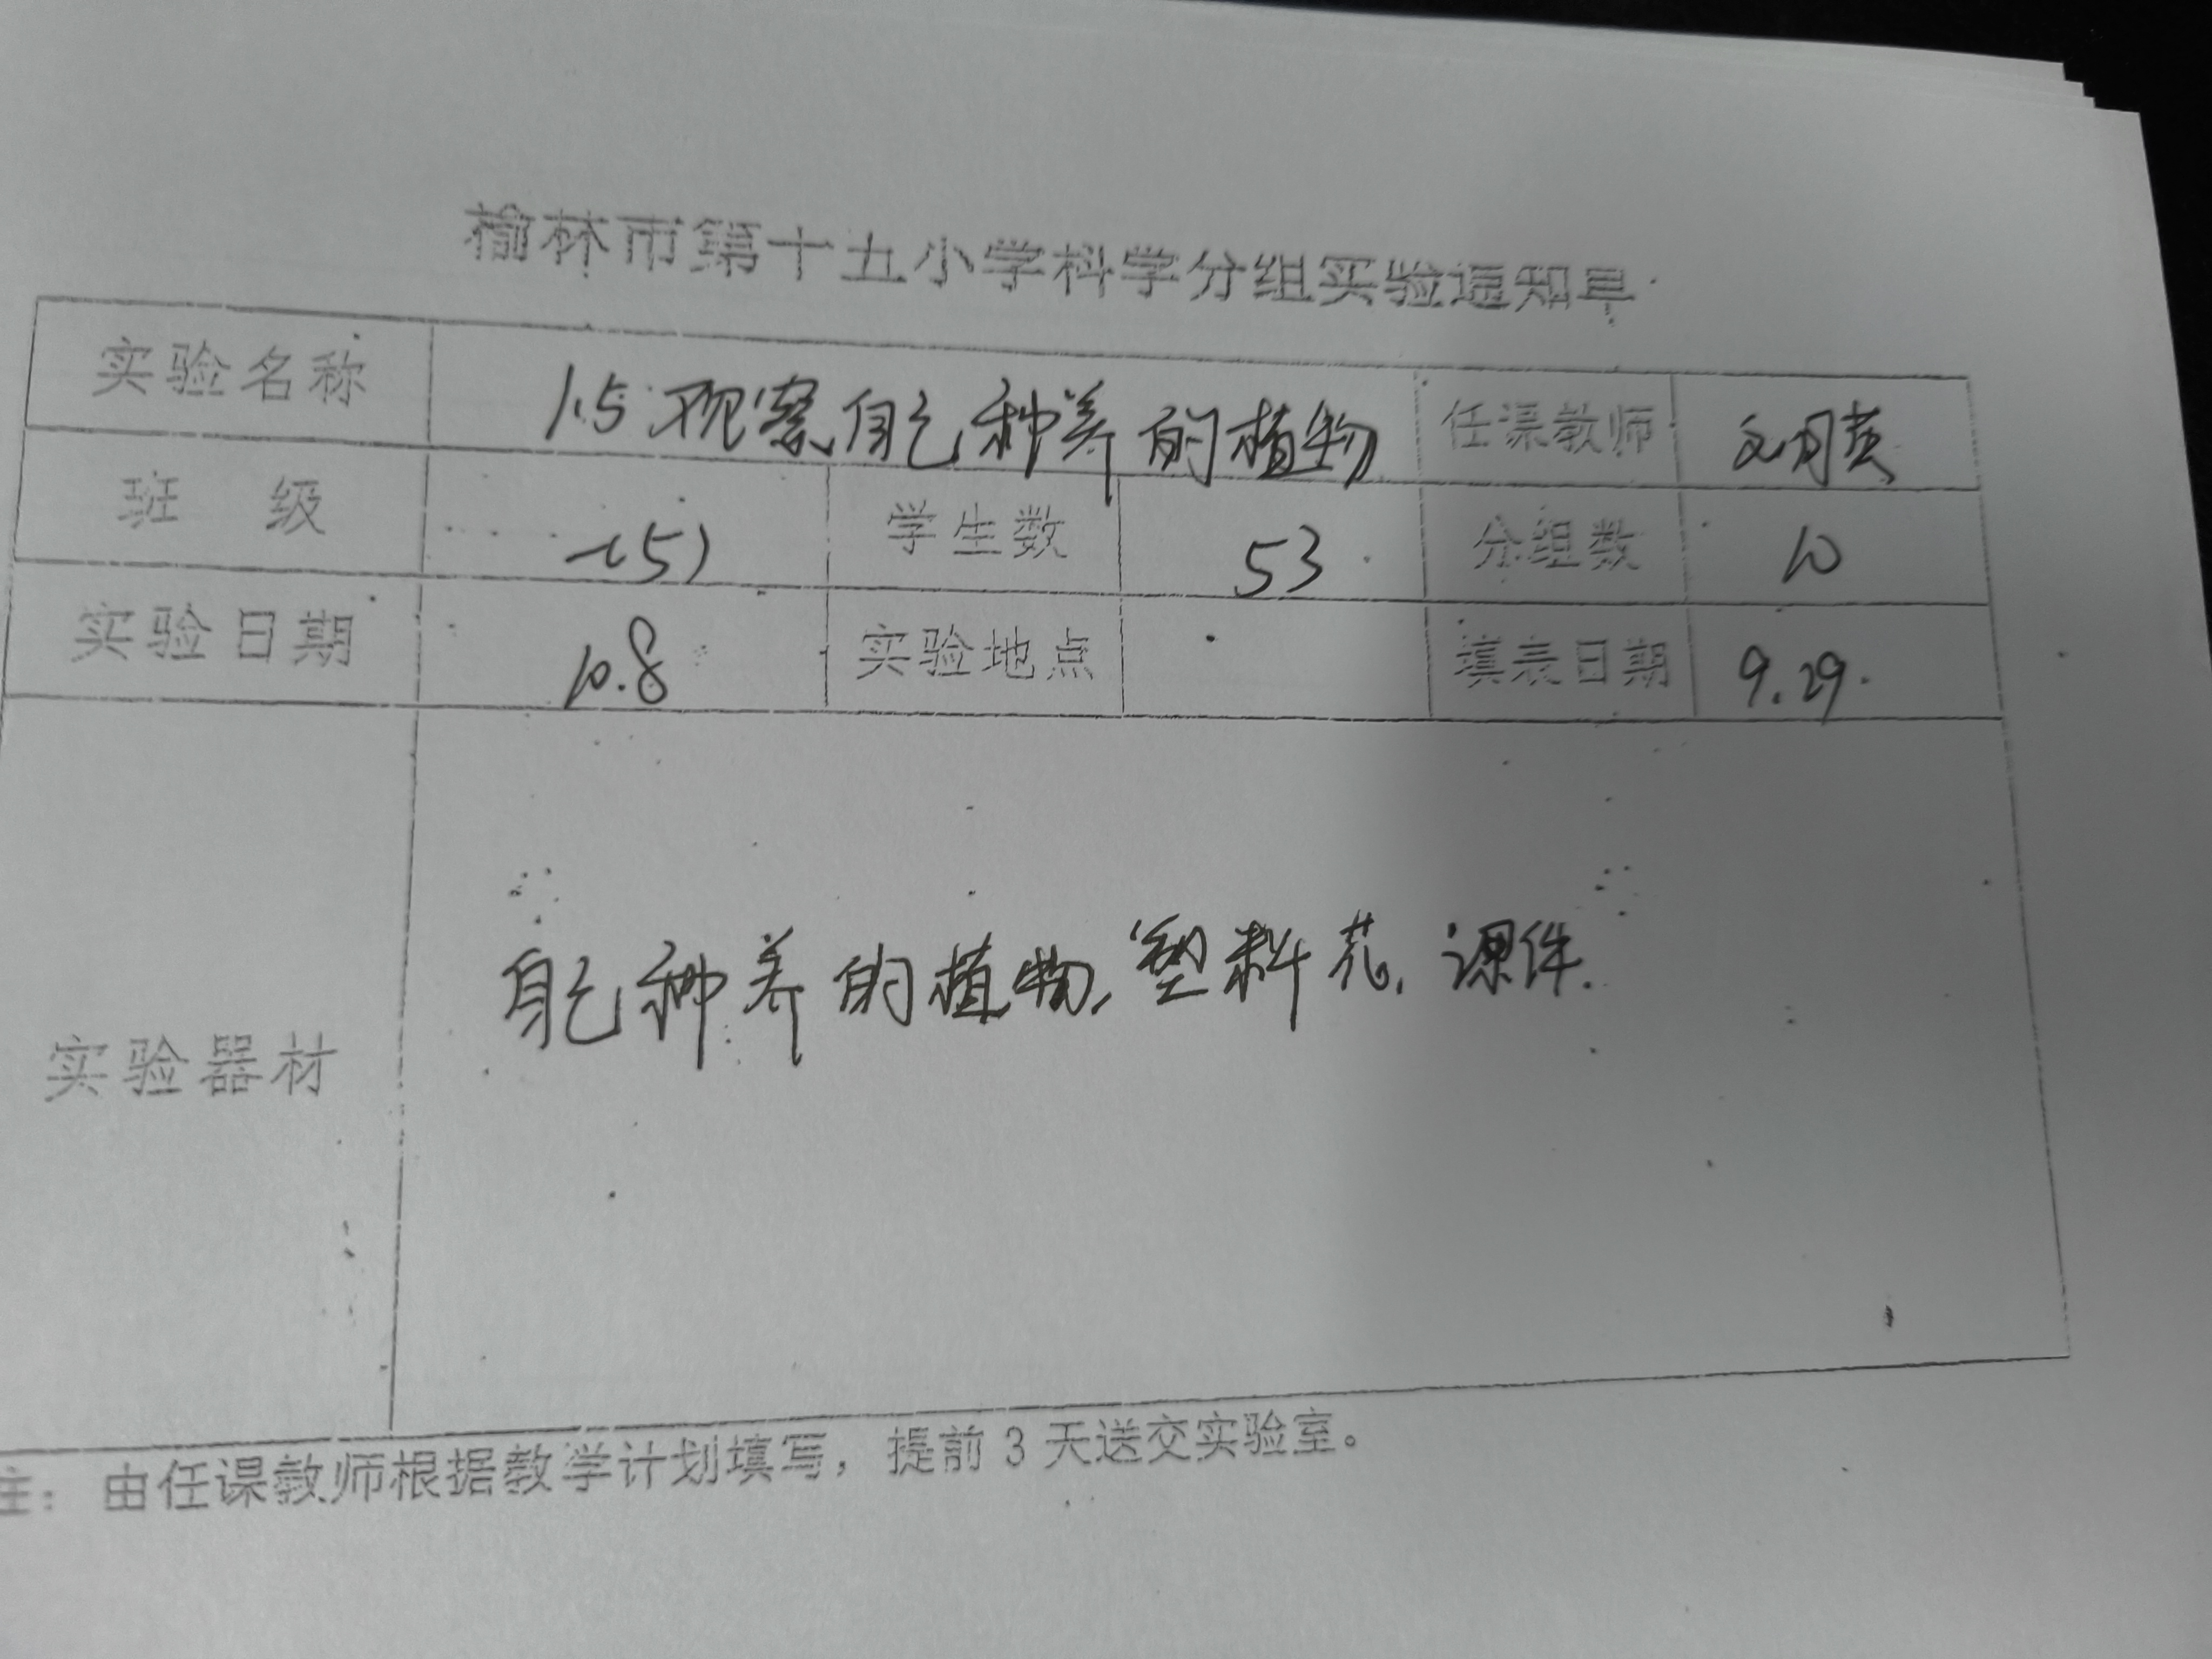 榆林市第十五小学科学分组实验通知单
实验名称 1.5观察自己种养的植物 任课教师
班 级 一(5) 学生数 53 分组数 10
实验日期 10.8 实验地点 填表日期 9.29.
实验器材 自己种养的植物, 塑料花, 课件.
注: 由任课教师根据教学计划填写，提前3天送交实验室。